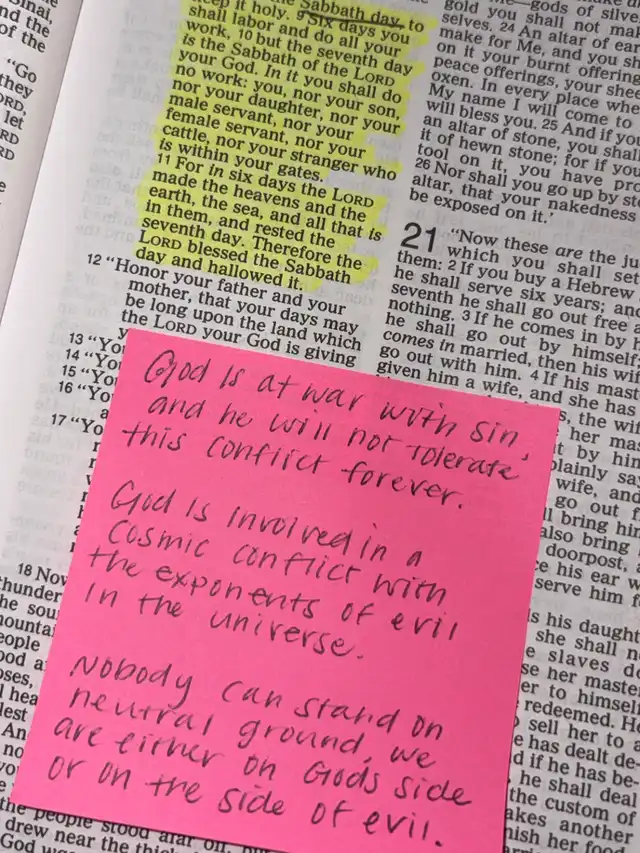 Sinai,
nd the
of the
"Go
they
ORD,
let
RD
RD
the Sabbath day, to
keep it holy. 9 Six days you
shall labor and do all your
work, 10 but the seventh day
is the Sabbath of the LORD
your God. In it you shall do
no work: you, nor your son,
nor your daughter, nor your
male servant, nor your
female servant, nor your
cattle, nor your stranger who
is within your gates.
11 For in six days the LORD
made the heavens and the
earth, the sea, and all that is
in them, and rested the
seventh day. Therefore the
LORD blessed the Sabbath
day and hallowed it.
12 "Honor your father and your
mother, that your days may
be long upon the land which
the LORD your God is giving
y
13 "You
14 "You
15 "You
16 "You
17 "Yo
18 Nov
thunder
he sou
mountai
eople
ood a
oses,
l hea
lest
An
no
God is at war with sin,
and he will not tolerate
this conflict forever.
God is involved in a
cosmic conflict with
the exponents of evil
in the universe.
Nobody can stand on
neutral ground, we
are either on Gods side
or on the side of evil.
the people stood afar off, bu
drew near the thick
God wa
gods of silve
gold you shall not mak
selves. 24 An altar of ear
make for Me, and you sh
on it your burnt offering
peace offerings, your shee
oxen. In every place whe
My name I will come to
will bless you. 25 And if you
an altar of stone, you shall
it of hewn stone; for if you
tool on it, you have pro
26 Nor shall you go up by ste
altar, that your nakedness
be exposed on it.'
21 "Now these are the ju
which you shall set
them: 2 If you buy a Hebrew
he shall serve six years; and
seventh he shall go out free
nothing. 3 If he comes in by h
he shall go out by himself;
comes in married, then his wif
go out with him. 4 If his mast
given him a wife, and she has
s, the wif
her mas
t by him
plainly say
wife, and
go out f
ll bring him
also bring
doorpost, a
ce his ear w
serve him f
ls his daught
she shall no
e slaves do
se her master
er to himself
redeemed. He
sell her to a
e has dealt de-
d if he has be-
he shall deal
the custom of
akes another
nish her food